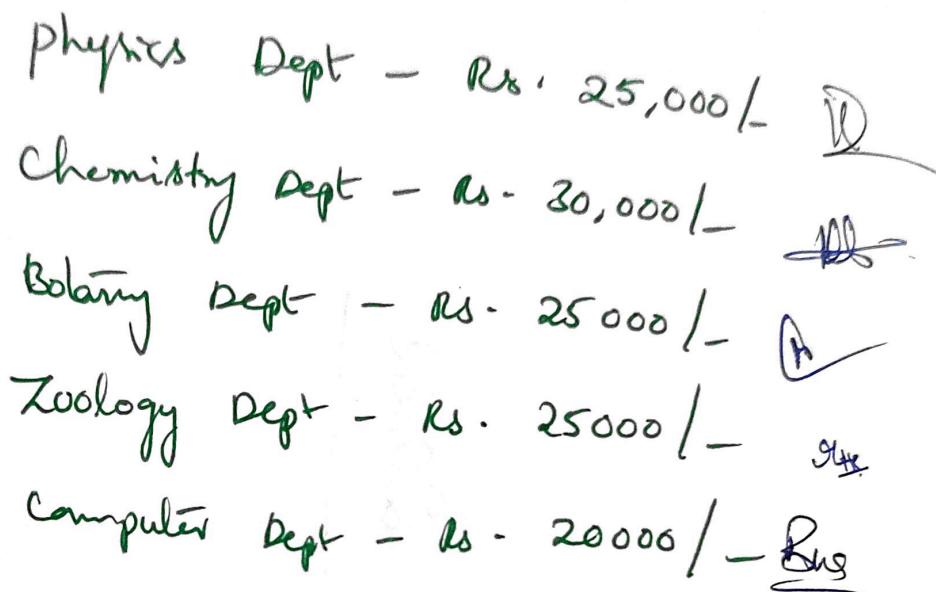 Physics Dept - Rs. 25,000/-
Chemistry Dept - Rs. 30,000/-
Botany Dept - Rs. 25000/-
Zoology Dept - Rs. 25000/-
Computer Dept - Rs. 20000/-